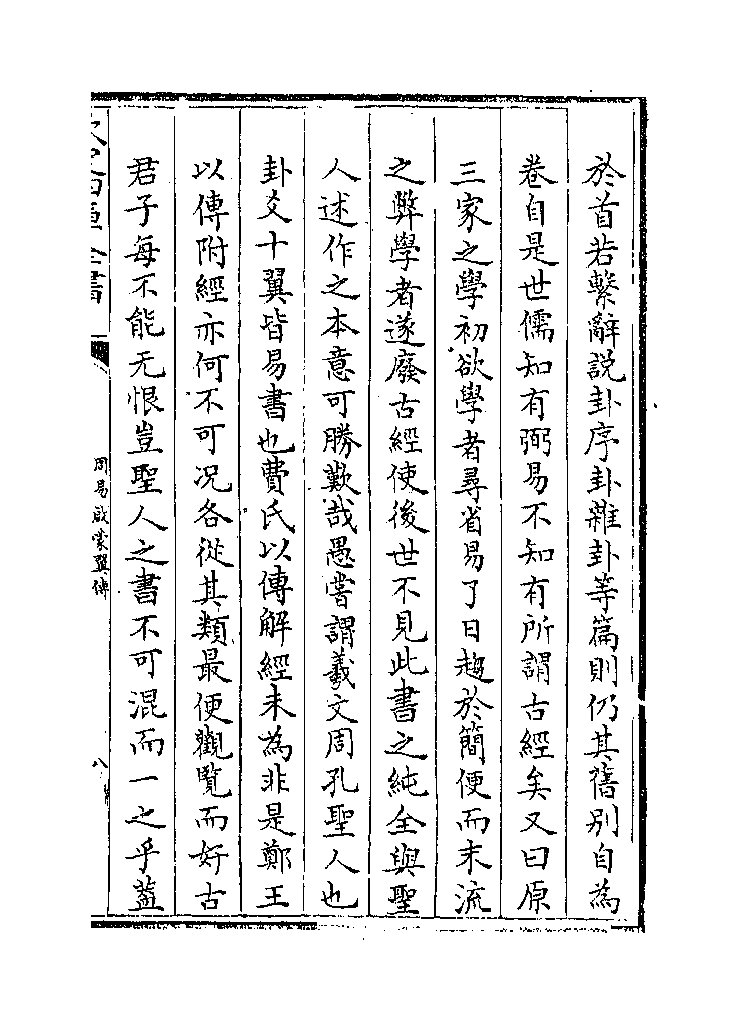 於首若繫辭說卦序卦雜卦等篇則仍其舊別自為
卷自是世儒知有弼易不知有所謂古經矣又曰原
三家之學初欲學者尋省易了日趨於簡便而末流
之弊學者遂廢古經使後世不見此書之純全與聖
人述作之本意可勝歎哉愚嘗謂羲文周孔聖人也
卦爻十翼皆易書也費氏以傳解經未為非是鄭王
以傳附經亦何不可况各從其類最便觀覽而好古
君子每不能无恨豈聖人之書不可混而一之乎蓋
欽定四庫全書
周易啟蒙翼傳
八